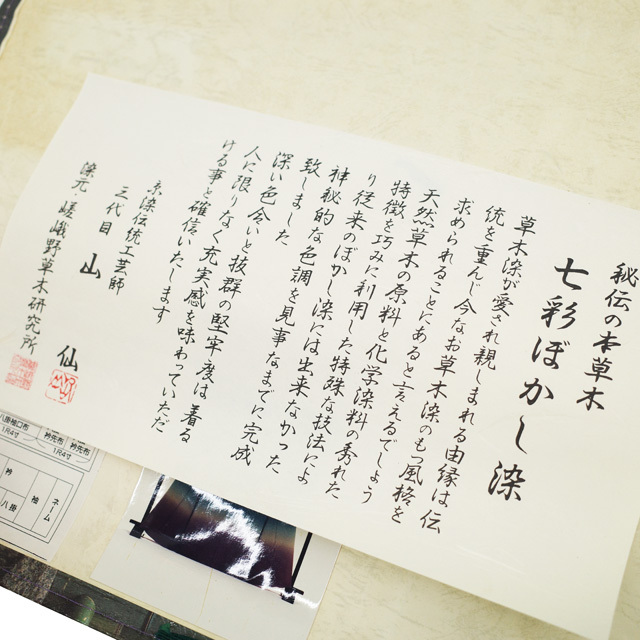 秘伝の本草木
七彩ぼかし染
草木染が愛され親しまれる由縁は伝
統を重んじ今なお草木染のもつ風格を
求められることにあると言えるでしょう
天然草木の原料と化学染料の秀れた
特徴を巧みに利用した特殊な技法によ
り従来のぼかし染には出来なかった
神秘的な色調を見事なまでに完成
致しました
深い色合いと抜群の堅牢度は着る
人に限りなく充実感を味わっていただ
ける事と確信いたします
糸染伝統工芸師
三代目 山仙
染元 嵯峨野草木研究所
八掛袖口布
1尺4寸
衿先布
1尺4寸
衿先布
衿
袖
ネーム
八掛